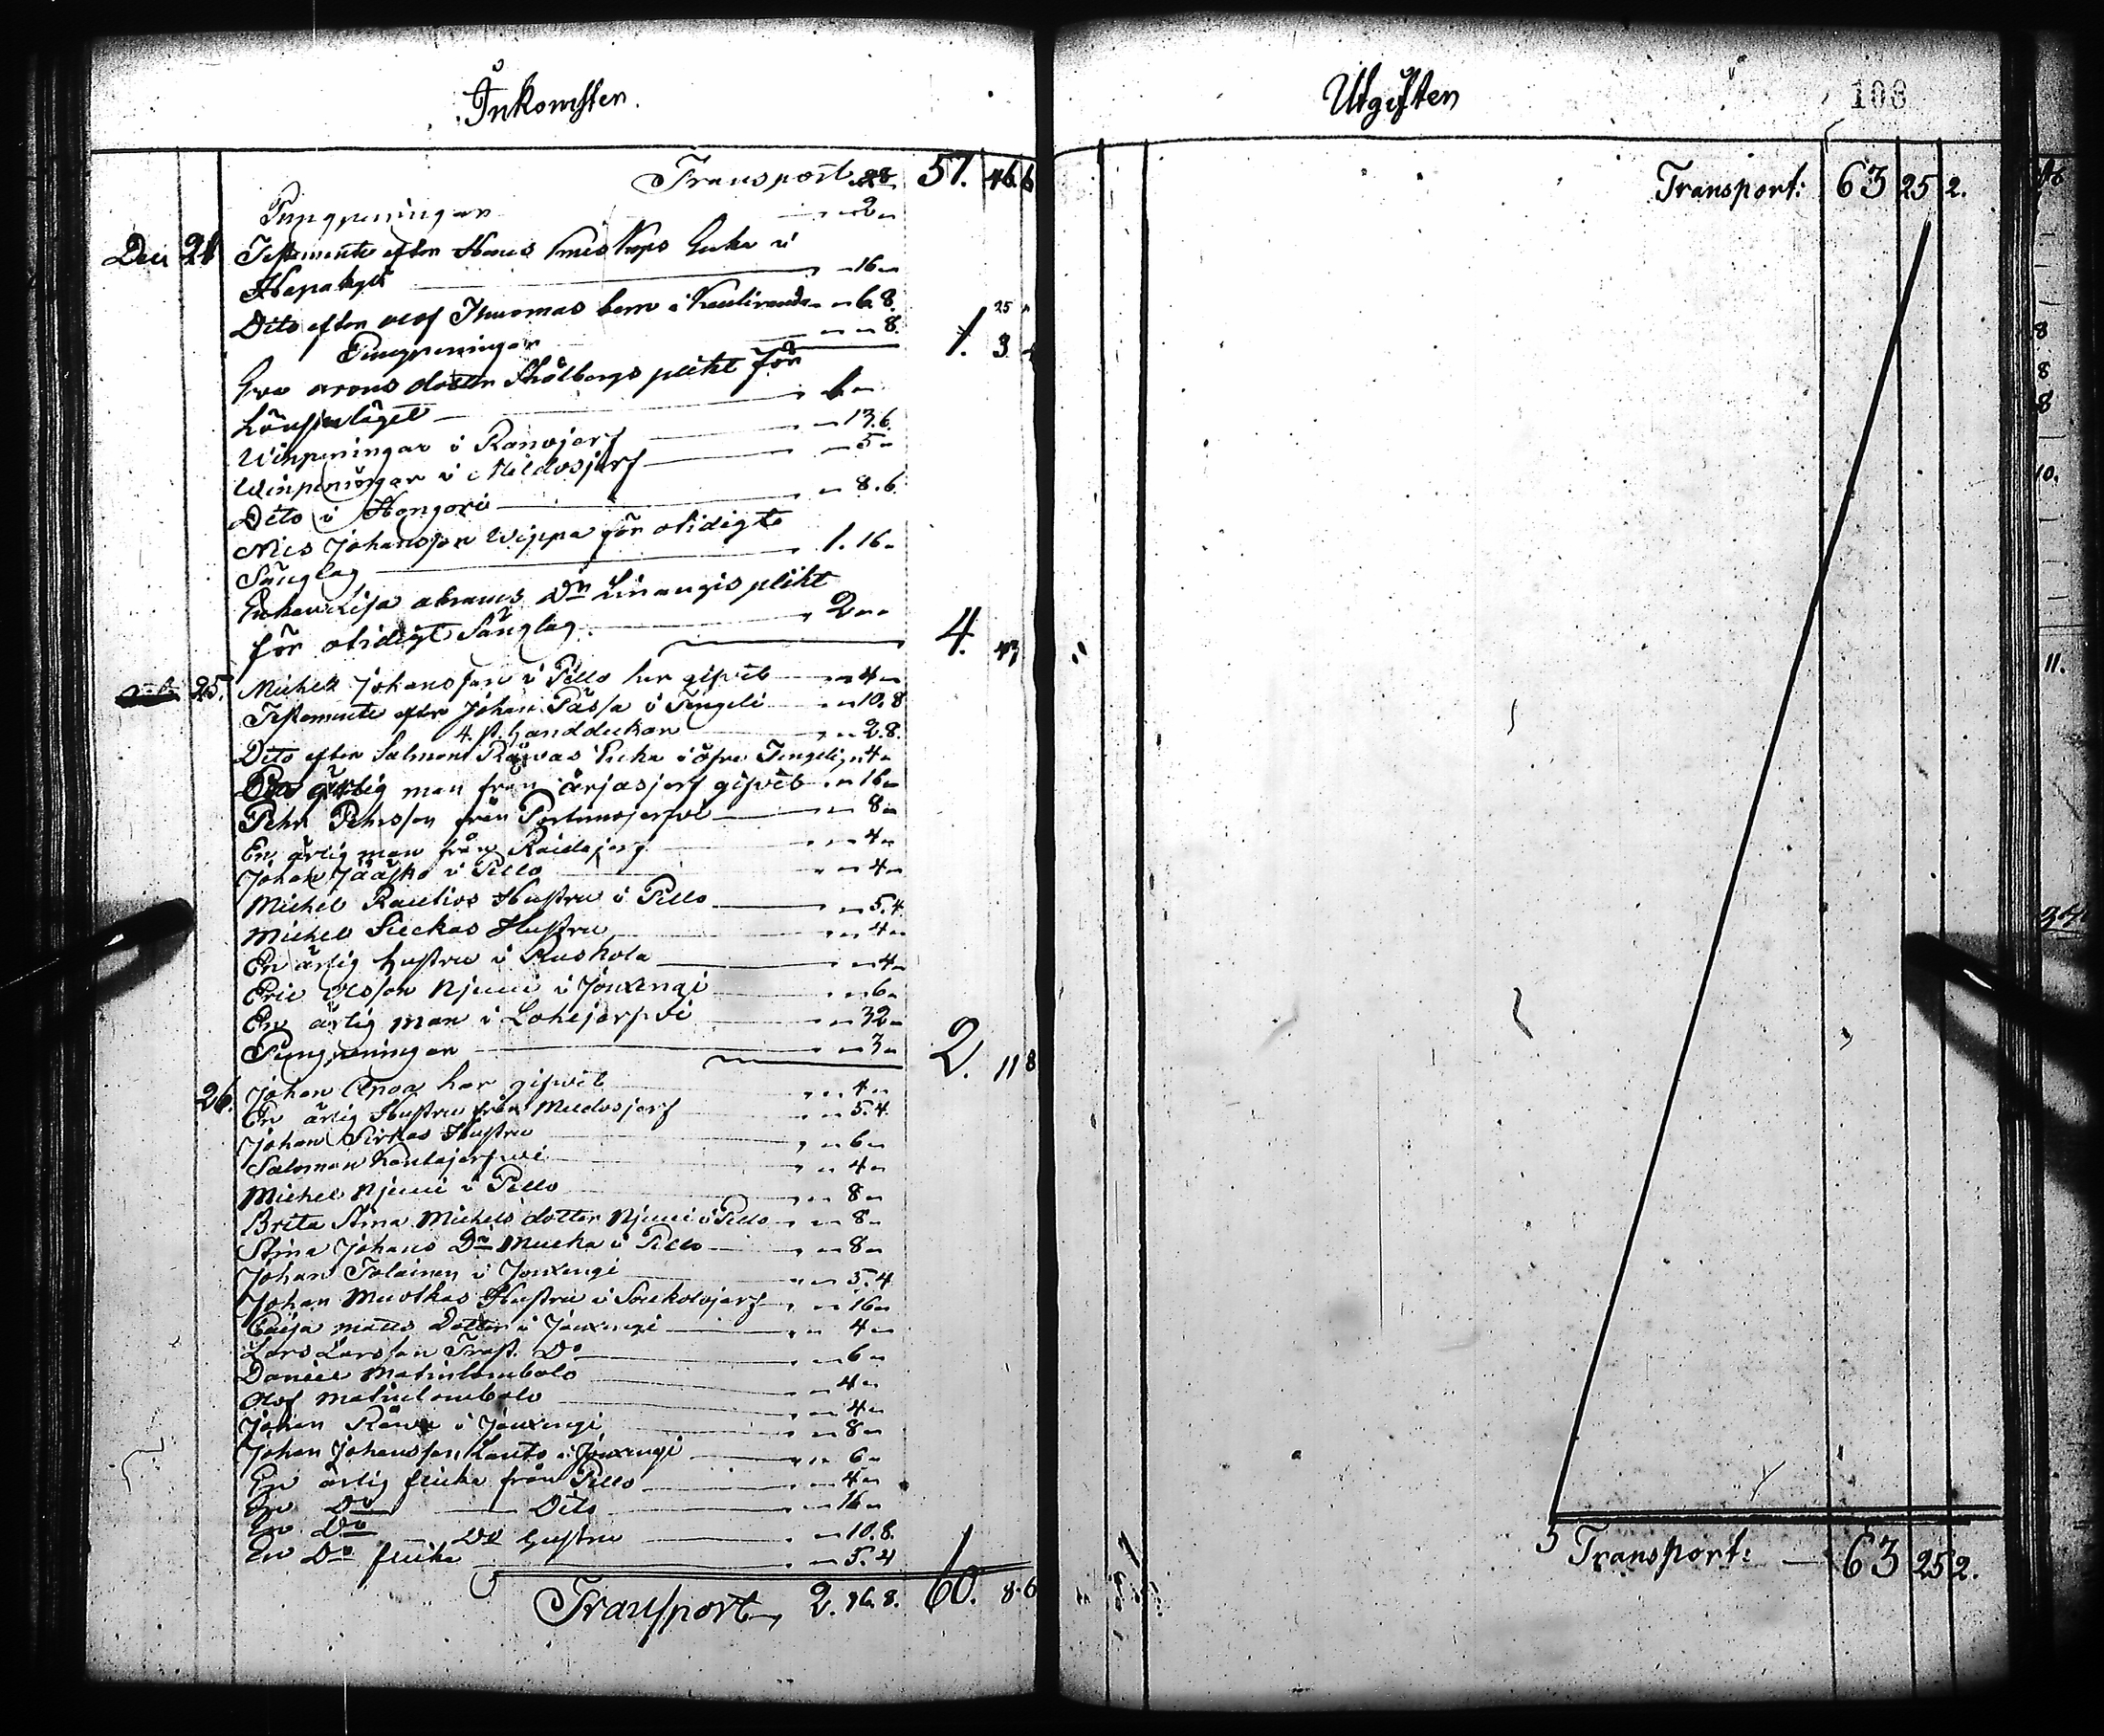 Inkomsten.
Transport 28. 51. 46. 6
Pungpeningar 2
Dec 21 Testamente efter Hans Enka i
16
Dito efter Olof Thuomas barn i 6.8. 25
Pungpeningar 8. 1. 3
Eva arons dotter Stålbergs plikt för
6
Winpeningar i Ranojerf 13.6.
Winpeningar i Mildosjerf 5
Dito i Kongori 8.6.
Nils Johansson Wippa för otidigt
Sänglag 1. 16
Enkan Lisa abrams Dr Linangis plikt
för otidigt Sänglag 2 4. 47
25. Michel Johansson i Pello har gifvit 4
Testamente efter Johan Pässa i Tengeli 10.8
4. st. handdukar 2.8.
Dito efter Salmon Räivas Enka i öfre Tengeli 4
ärlig man från ärjasjerf gifvit 16
Pehr Pehrsson från Portimojerfvi 8
En ärlig man från Raidajerf 4
Johan Jääskö i Pello 4
Michel Rautios Hustru i Pello 5.4
Michel Sieckas Hustru 4
En ärlig hustru i Ruskola 4
Eric Olsson Njuui i Jouxengi 6
En ärlig man i Lohijerfvi 32
Pungpeningar 3 2. 11 8
26. Johan har gifvit 4
En ärlig Hustru från Miedosjerf 5.4
Johan Sirkas Hustru 6
Salomon Kantajerfvi 4
Michel Njuui i Pello 8
Brita Stina Michels dotter Njuui i Pello 8
Stina Johans Dr Mucka i Pello 8
Johan Tolainen i Jouxengi 5.4
Johan Muotkas Hustru i Soukolojerf 16
Caisa matts Dotter i Jouxengi 4
Lars Larsson Trast Do 6
Daniel Matinlombolo 4
Olof Matinlombolo 4
Johan i Jouxengi 8
Johan Johansson Lauto i Jouxengi 6
En ärlig flicka från Pello 4
En Do Dito 16
En Do Do hustru 10.8.
En Do flicka 5.4
Transport 2. 16. 8. 60. 8.6
Utgiften
100
Transport: 63 25 2.
Transport: 63 25 2.